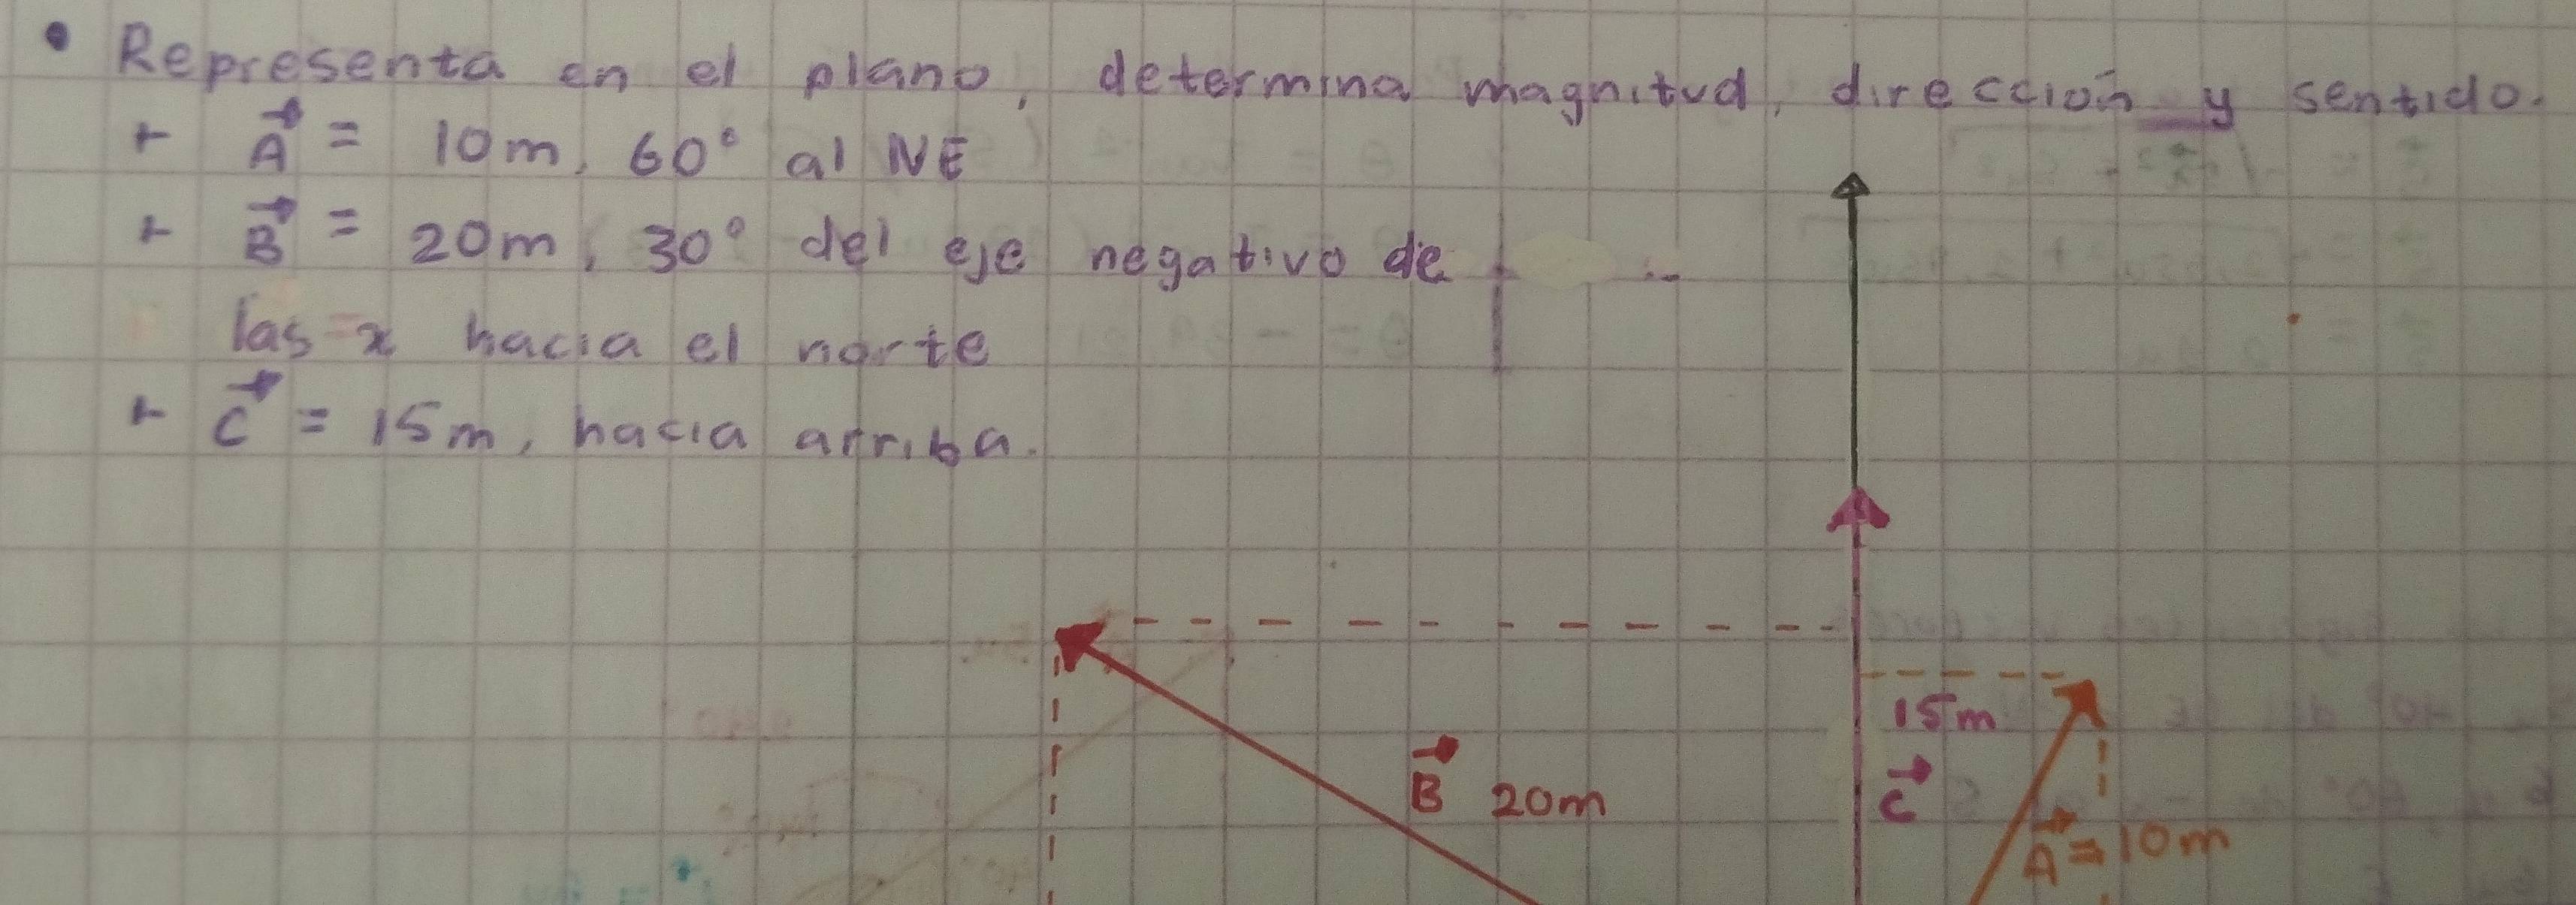 • Representa en el plano, determina magnitud, dirección y sentido.
+ A⃗ = 10m, 60° al NE
+ B⃗ = 20m, 30° del eje negativo de
las x hacia el norte
+ C⃗ = 15m, hacia arriba.
15m
B⃗ 20m
C⃗
A⃗ = 10m